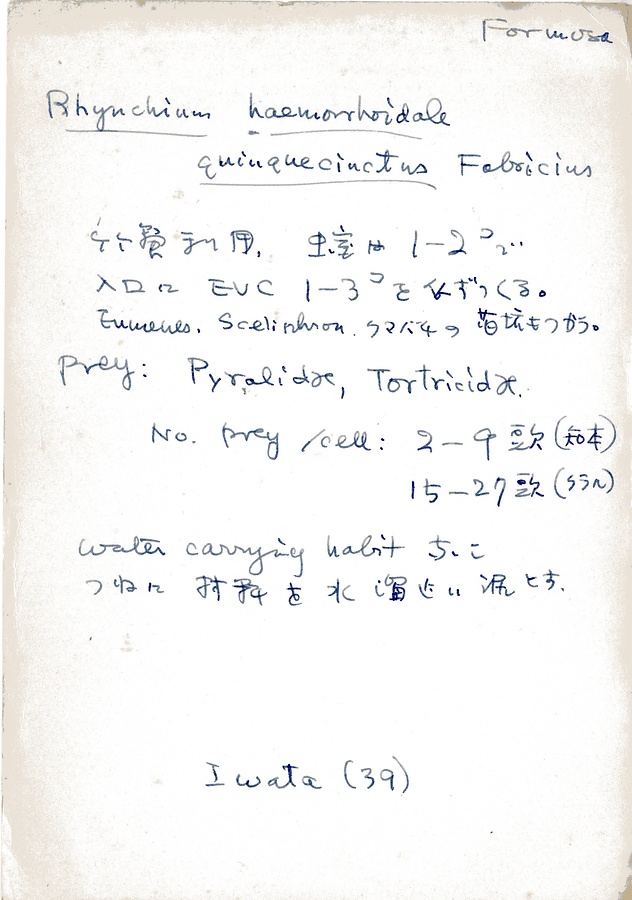 Formosa
Rhynchium haemorrhoidale
quinquecinctus Fabricius
竹筒利用, 虫室は 1-2コで..
入口に EVC 1-3コを必ずつくる。
Eumenes, Sceliphron, クマバチの舊坑もつかう。
prey: Pyralidæ, Tortricidæ.
No. prey /cell: 2-9頭(知本)
15-27頭(クラル)
water carrying habit
つねに 材料を水
Iwata (39)